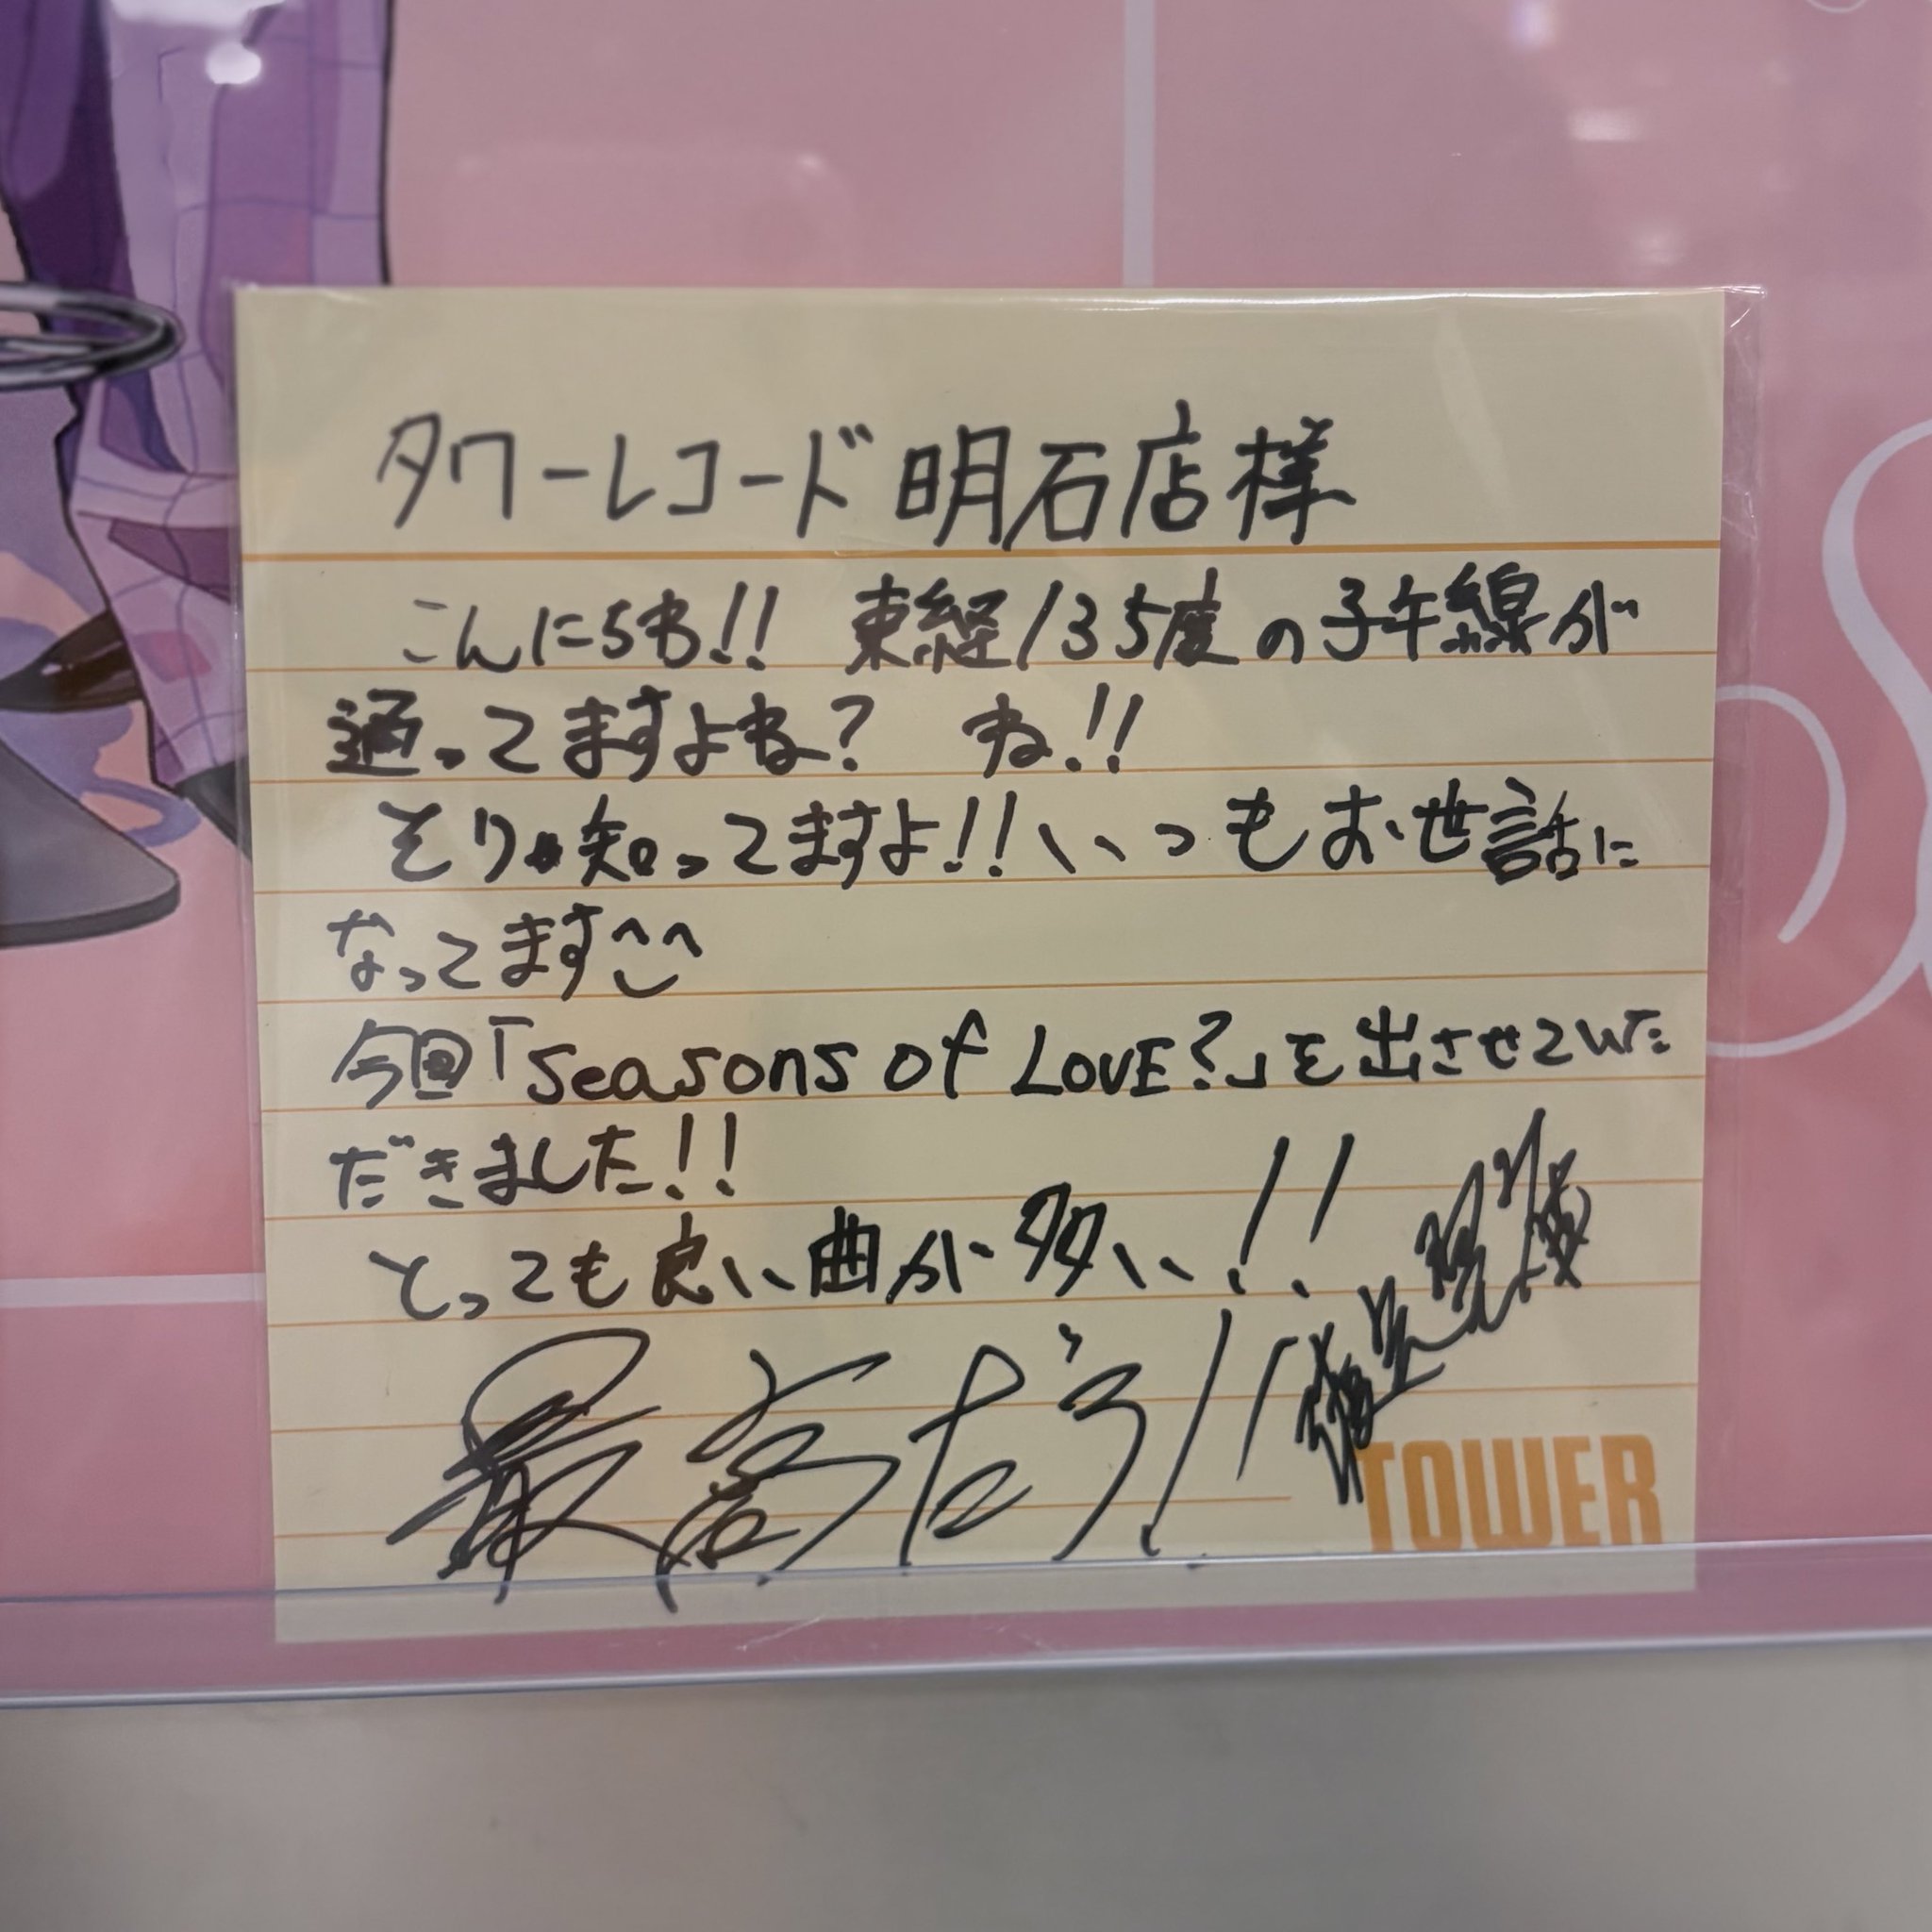 タワーレコード明石店様
こんにちわ!! 東経135度の子午線が
通ってますよね? ね!!
そりゃ知ってますよ!! いつもお世話に
なってます^^
今回「Seasons of LOVE?」を出させていた
だきました!!
とっても良い曲が多い!!
最高だぅ!!
TOWER